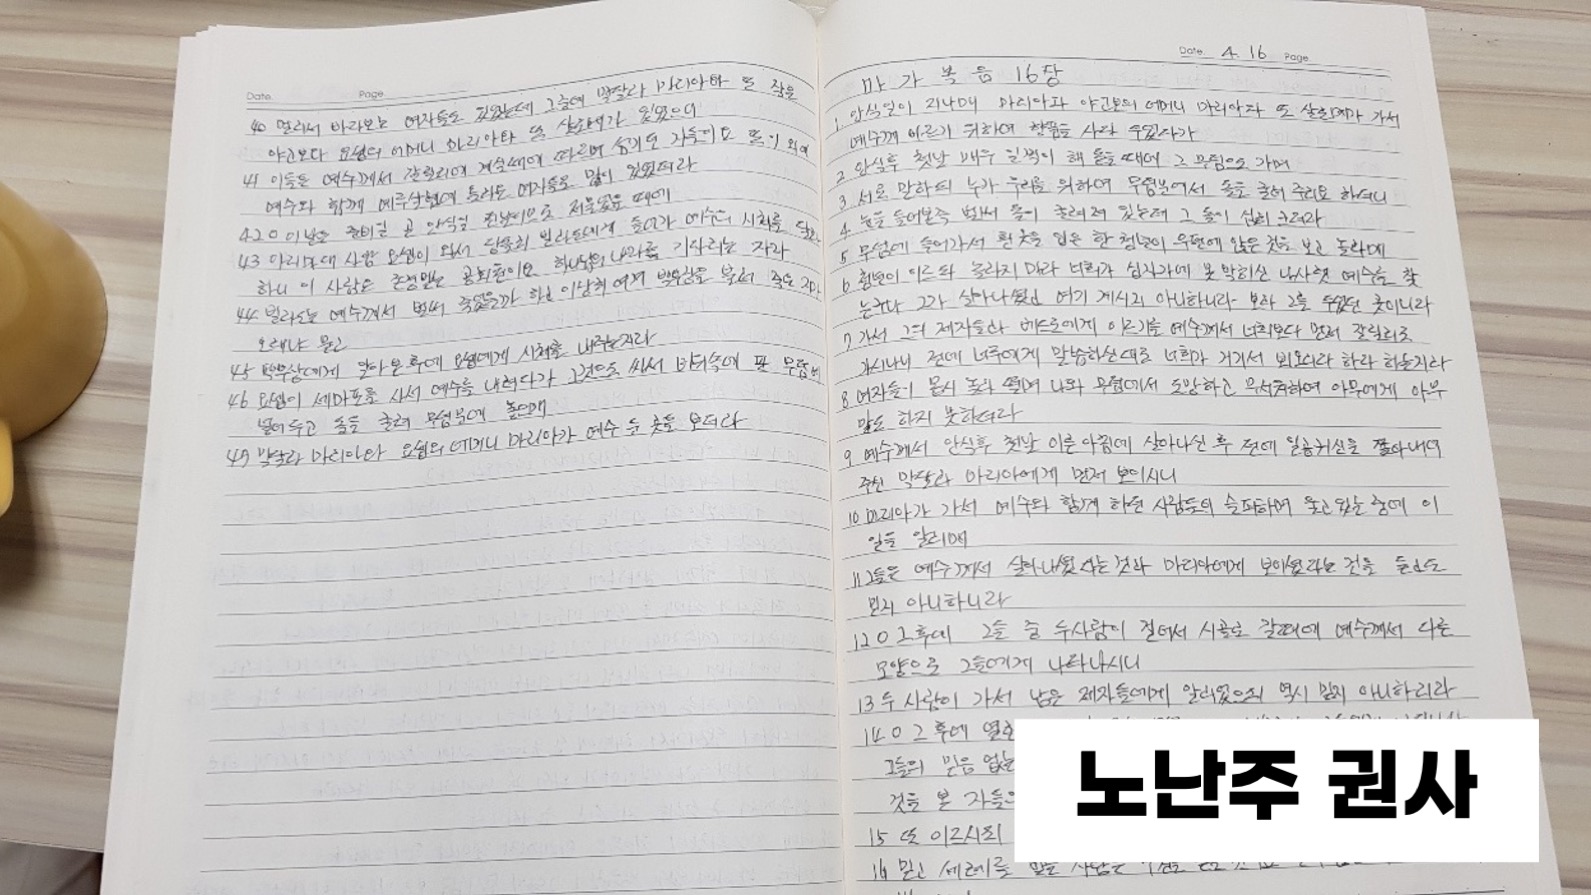 Date. Page.
40 멀리서 바라보는 여자들도 있었는데 그중에 막달라 마리아와 또 작은
야고보와 요셉의 어머니 마리아와 또 살로메가 있었으니
41 이들은 예수께서 갈릴리에 계실때에 따르며 섬기던 자들이요 또 이 외에
예수와 함께 예루살렘에 올라온 여자들도 많이 있었더라
42 0 이날은 준비일 곧 안식일 전날이므로 저물었을 때에
43 아리마대 사람 요셉이 와서 당돌히 빌라도에게 들어가 예수의 시체를 달라
하니 이 사람은 존경받는 공회원이요 하나님의 나라를 기다리는 자라
44 빌라도는 예수께서 벌써 죽었을까 하고 이상히 여겨 백부장을 불러 죽은 지가
오래냐 묻고
45 백부장에게 알아본 후에 요셉에게 시체를 내주는지라
46 요셉이 세마포를 사서 예수를 내려다가 그것으로 싸서 바위속에 판 무덤에
넣어두고 돌을 굴려 무덤문에 놓으매
47 막달라 마리아와 요셉의 어머니 마리아가 예수 둔 곳을 보더라
Date. 4. 16 Page.
마가복음 16장
1 안식일이 지나매 마리아와 야고보의 어머니 마리아와 또 살로메가 가서
예수께 바르기 위하여 향품을 사다 두었다가
2 안식후 첫날 매우 일찍이 해 돋을 때에 그 무덤으로 가며
3 서로 말하되 누가 우리를 위하여 무덤문에서 돌을 굴려 주리요 하더니
4 눈을 들어본즉 벌써 돌이 굴려져 있는데 그 돌이 심히 크더라
5 무덤에 들어가서 흰 옷을 입은 한 청년이 우편에 앉은 것을 보고 놀라매
6 청년이 이르되 놀라지 마라 너희가 십자가에 못 박히신 나사렛 예수를 찾
는구나 그가 살아나셨고 여기 계시지 아니하니라 보라 그를 두었던 곳이니라
7 가서 그의 제자들과 베드로에게 이르기를 예수께서 너희보다 먼저 갈릴리로
가시나니 전에 너희에게 말씀하신대로 너희가 거기서 뵈오리라 하라 하는지라
8 여자들이 몹시 놀라 떨며 나와 무덤에서 도망하고 무서워하여 아무에게 아무
말도 하지 못하더라
9 예수께서 안식후 첫날 이른 아침에 살아나신 후 전에 일곱귀신을 쫓아내어
주신 막달라 마리아에게 먼저 보이시니
10 마리아가 가서 예수와 함께 하던 사람들의 슬퍼하며 울고 있는 중에 이
일을 알리매
11 그들은 예수께서 살아나셨다는 것과 마리아에게 보이셨다는 것을 듣고도
믿지 아니하니라
12 0 그 후에 그들 중 두사람이 걸어서 시골로 갈때에 예수께서 다른
모양으로 그들에게 나타나시니
13 두 사람이 가서 남은 제자들에게 알리었으되 역시 믿지 아니하니라
14 0 그 후에
그들의 믿음 없는
것을 본 자들의
15 또 이르시되
16 믿고 세례를 받는 사람은
노난주 권사